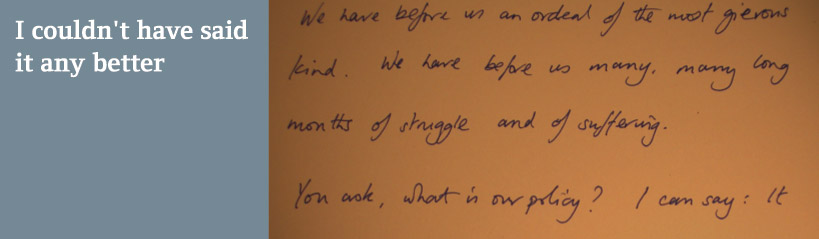 I couldn't have said
it any better
We have before us an ordeal of the most grievous
kind. We have before us many, many long
months of struggle and of suffering.
You ask, what is our policy? I can say: It